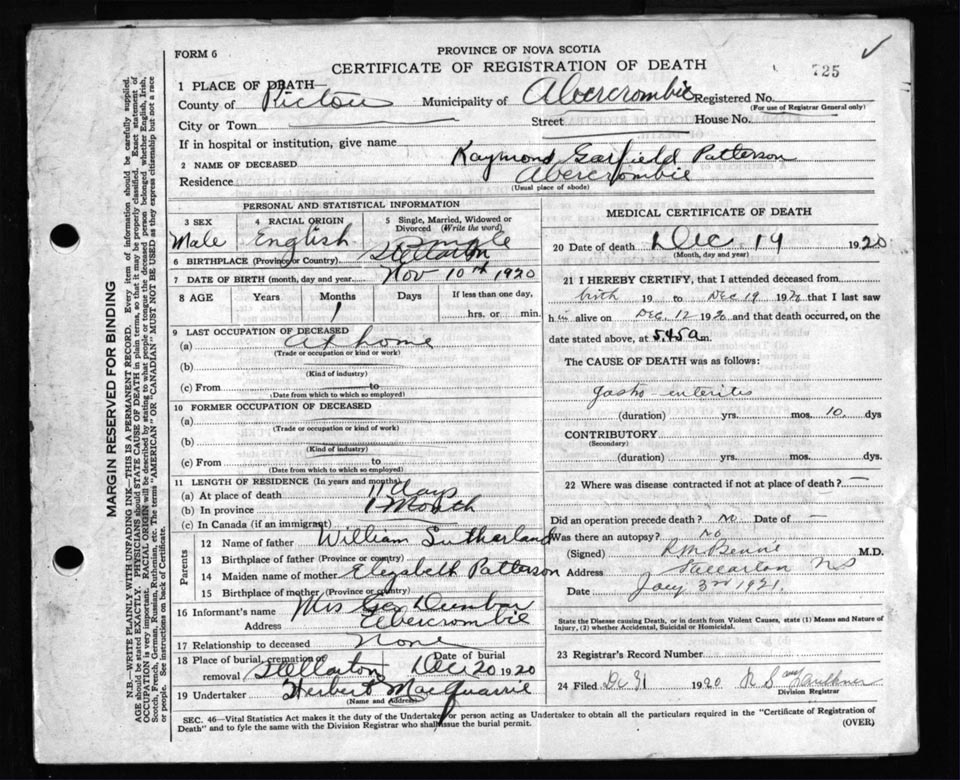 FORM 6
PROVINCE OF NOVA SCOTIA
CERTIFICATE OF REGISTRATION OF DEATH
725
1 PLACE OF DEATH—
County of Pictou Municipality of Abercrombie Registered No.
(For use of Registrar General only)
City or Town Street House No.
If in hospital or institution, give name
2 NAME OF DECEASED Raymond Garfield Patterson
Residence Abercrombie
(Usual place of abode)
PERSONAL AND STATISTICAL INFORMATION
3 SEX 4 RACIAL ORIGIN 5 Single, Married, Widowed or Divorced (Write the word)
Male English Single
6 BIRTHPLACE (Province or Country). Stellarton
7 DATE OF BIRTH (month, day and year) Nov 10th 1920
8 AGE Years Months Days If less than one day,
1 hrs. or min.
9 LAST OCCUPATION OF DECEASED
(a) At home
(Trade or occupation or kind or work)
(b)
(Kind of industry)
(c) From to
(Date from which to which so employed)
10 FORMER OCCUPATION OF DECEASED
(a)
(Trade or occupation or kind of work)
(b)
(Kind of industry)
(c) From to
(Date from which to which so employed)
11 LENGTH OF RESIDENCE (In years and months)
(a) At place of death 11 days
(b) In province 1 Month
(c) In Canada (if an immigrant)
Parents
12 Name of father William Sutherland
13 Birthplace of father (Province or country)
14 Maiden name of mother Elizabeth Patterson
15 Birthplace of mother (Province or country)
16 Informant's name Mrs Geo Dunbar
Address Abercrombie
17 Relationship to deceased None
18 Place of burial, cremation or removal Stellarton Date of burial Dec 20 1920
19 Undertaker Herbert MacQuarrie
(Name and Address)
MEDICAL CERTIFICATE OF DEATH
20 Date of death Dec 19 1920
(Month, day and year)
21 I HEREBY CERTIFY, that I attended deceased from
birth 19 to Dec 19 1920 that I last saw
h im alive on Dec. 12 1920 and that death occurred, on the
date stated above, at 5.45 a m.
The CAUSE OF DEATH was as follows:
gastro-enteritis
(duration) yrs. mos. 10 dys
CONTRIBUTORY
(Secondary)
(duration) yrs. mos. dys.
22 Where was disease contracted if not at place of death?
Did an operation precede death? no Date of
Was there an autopsy? no
(Signed) M.D.
Address Stellarton NS
Date Jany 3rd 1921.
State the Disease causing Death, or in death from Violent Causes, state (1) Means and Nature of
Injury, (2) whether Accidental, Suicidal or Homicidal.
23 Registrar's Record Number
24 Filed Dc 31 1920 Faulkner
Division Registrar
SEC. 46—Vital Statistics Act makes it the duty of the Undertaker or person acting as Undertaker to obtain all the particulars required in the "Certificate of Registration of
Death" and to fyle the same with the Division Registrar who shall issue the burial permit.
(OVER)
MARGIN RESERVED FOR BINDING
N.B.—WRITE PLAINLY WITH UNFADING INK—THIS IS A PERMANENT RECORD. Every item of information should be carefully supplied.
AGE should be stated EXACTLY. PHYSICIANS should STATE CAUSE OF DEATH in plain terms, so that it may be properly classified. Exact statement of
OCCUPATION is very important. RACIAL ORIGIN will be described by stating to what people or tongue the deceased person belonged whether English, Irish,
Scotch, French, German, Russian, Ruthenian, etc. The terms "AMERICAN" OR "CANADIAN" MUST NOT BE USED as they express citizenship but not a race
or people. See instructions on back of Certificate.